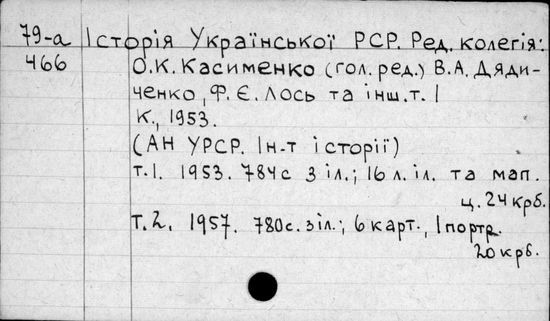 79-а Історія Української РСР. Ред. колегія:
466 О.К. Касименко (гол. ред.) В.А. Дяди-
ченко, Ф.Є. Лось та інш. т. 1
К., 1953.
(АН УРСР. Ін-т історії)
т.1. 1953. 784с з іл.; 16 л. іл. та мап.
ц. 24 крб.
т. 2. 1957. 780с. з іл.; 6 карт., 1 портр.
20 крб.